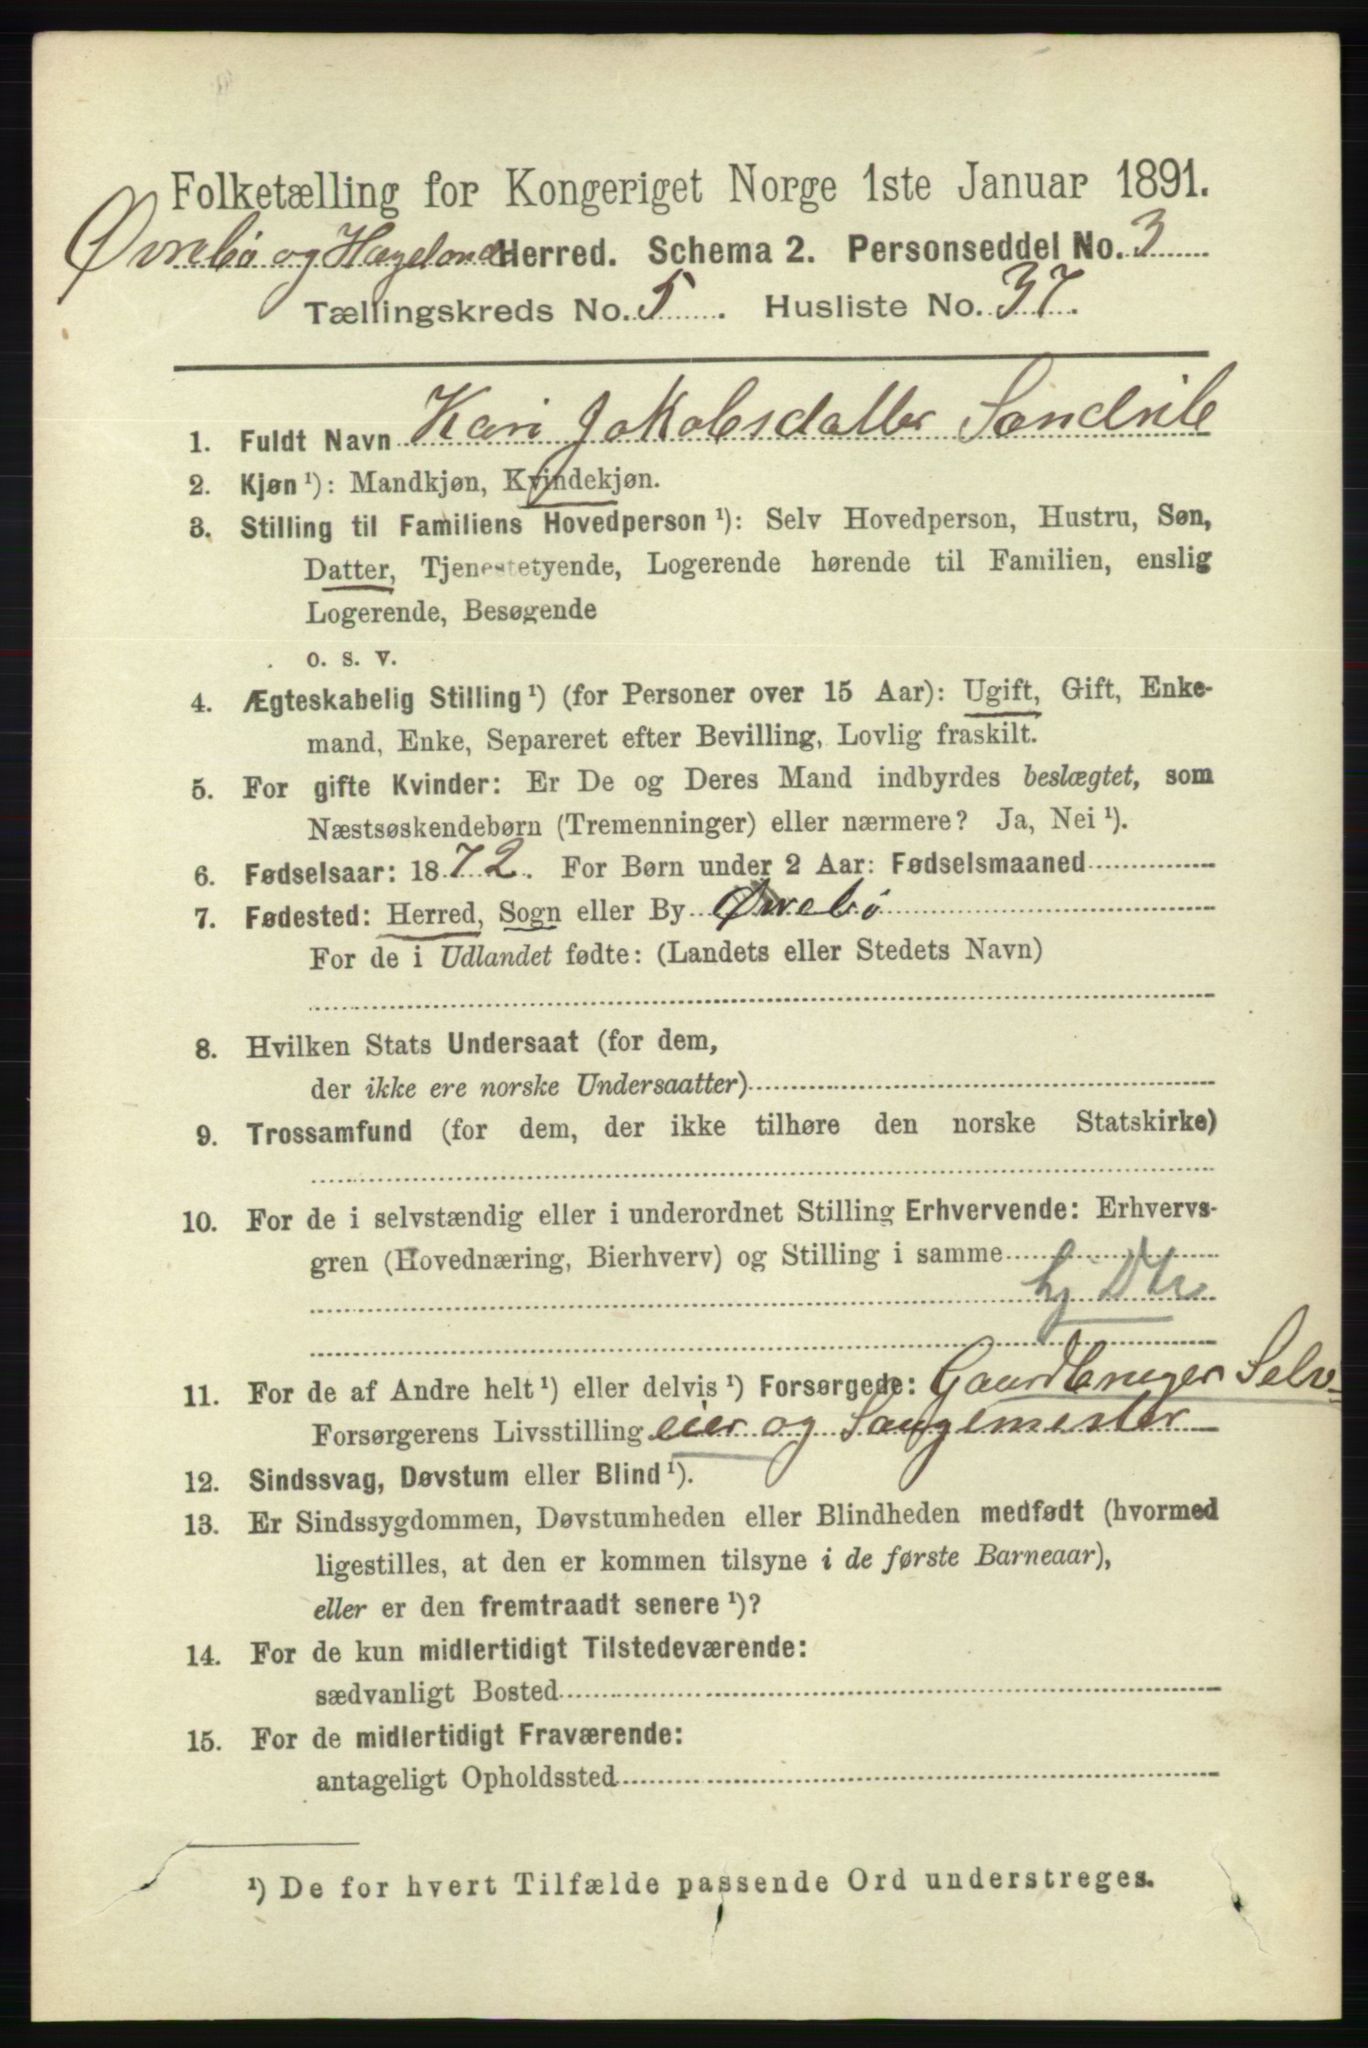 Folketælling for Kongeriget Norge 1ste Januar 1891.
Øvrebø og Hægeland Herred. Schema 2. Personseddel No. 3
Tællingskreds No. 5. Husliste No. 37.
1. Fuldt Navn Kari Jakobsdatter
2. Kjøn ¹): Mandkjøn, Kvindekjøn.
3. Stilling til Familiens Hovedperson ¹): Selv Hovedperson, Hustru, Søn,
Datter, Tjenestetyende, Logerende hørende til Familien, enslig
Logerende, Besøgende
o. s. v.
4. Ægteskabelig Stilling ¹) (for Personer over 15 Aar): Ugift, Gift, Enke-
mand, Enke, Separeret efter Bevilling, Lovlig fraskilt.
5. For gifte Kvinder: Er De og Deres Mand indbyrdes beslægtet, som
Næstsøskendebørn (Tremenninger) eller nærmere? Ja, Nei ¹).
6. Fødselsaar: 1872. For Børn under 2 Aar: Fødselsmaaned
7. Fødested: Herred, Sogn eller By Øvrebø
For de i Udlandet fødte: (Landets eller Stedets Navn)
8. Hvilken Stats Undersaat (for dem,
der ikke ere norske Undersaatter)
9. Trossamfund (for dem, der ikke tilhøre den norske Statskirke)
10. For de i selvstændig eller i underordnet Stilling Erhvervende: Erhvervs-
gren (Hovednæring, Bierhverv) og Stilling i samme
hj Dtr
11. For de af Andre helt ¹) eller delvis ¹) Forsørgede: Gaardbruger Selv-
Forsørgerens Livsstilling eier og Saugmester
12. Sindssvag, Døvstum eller Blind ¹).
13. Er Sindssygdommen, Døvstumheden eller Blindheden medfødt (hvormed
ligestilles, at den er kommen tilsyne i de første Barneaar),
eller er den fremtraadt senere ¹)?
14. For de kun midlertidigt Tilstedeværende:
sædvanligt Bosted
15. For de midlertidigt Fraværende:
antageligt Opholdssted
¹) De for hvert Tilfælde passende Ord understreges.